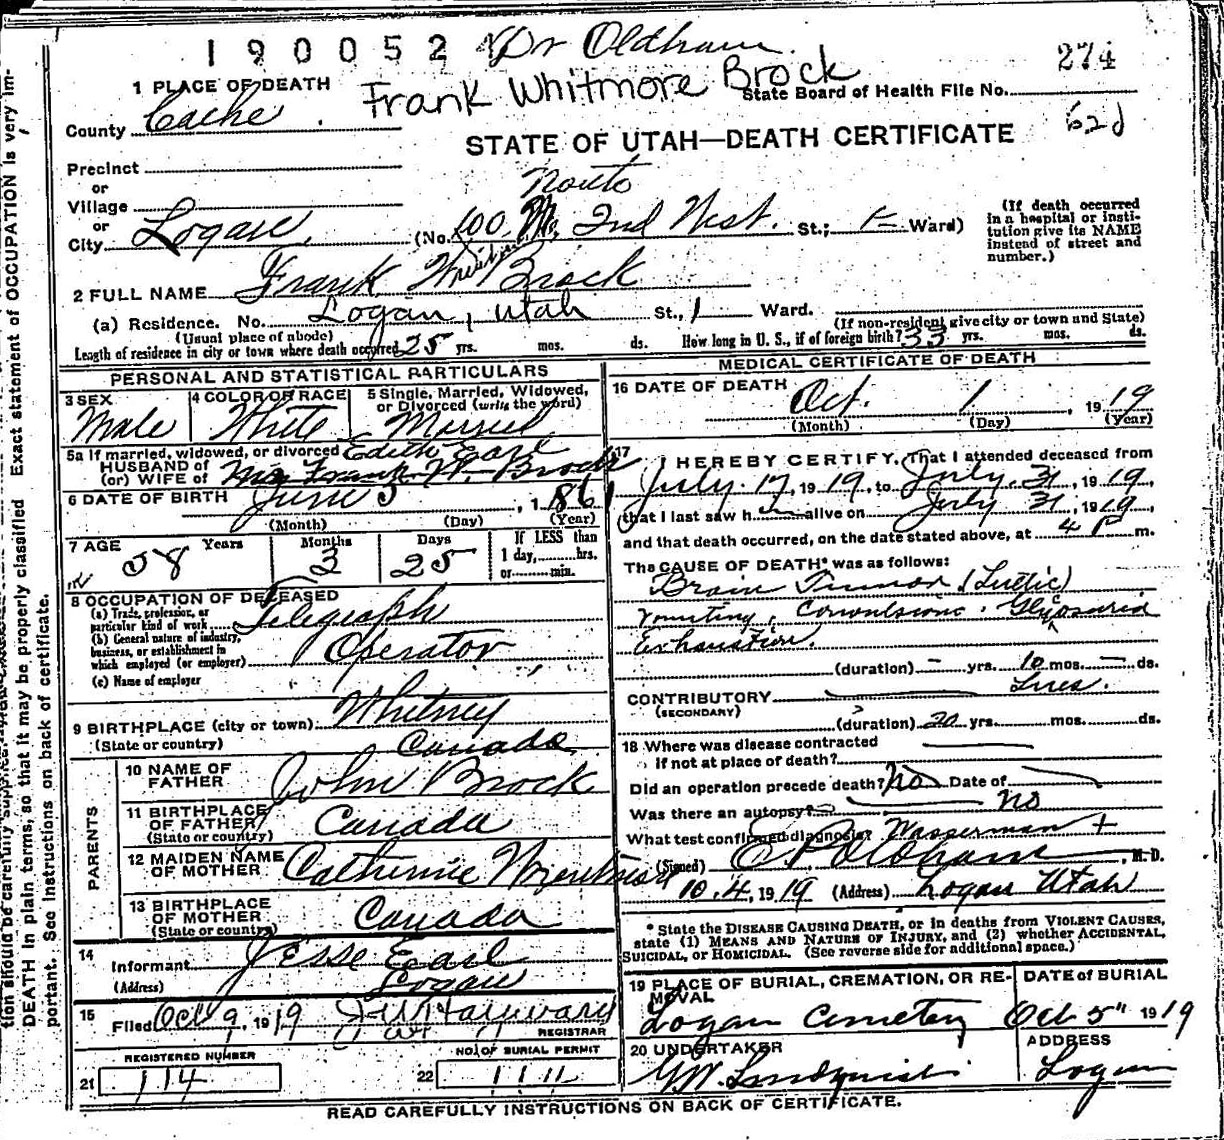 1900524 Dr Oldham. 274
Frank Whitmore Brock
1 PLACE OF DEATH
State Board of Health File No.
County Cache.
62d
STATE OF UTAH—DEATH CERTIFICATE
Precinct
or
Village
or
City Logan,
North
(No. 100 2nd West. St.; 1 Ward)
(If death occurred in a hospital or insti-
tution give its NAME
instead of street and
number.)
2 FULL NAME Frank W Brock
(a) Residence. No. Logan, Utah St., 1 Ward.
(Usual place of abode)
(If non-resident give city or town and State)
Length of residence in city or town where death occurred 25 yrs. mos. ds. How long in U. S., if of foreign birth? 33 yrs. mos. ds.
PERSONAL AND STATISTICAL PARTICULARS
3 SEX
Male
4 COLOR OR RACE
White
5 Single, Married, Widowed,
or Divorced (write the word)
Married
5a If married, widowed, or divorced Edith Earl
HUSBAND of
(or) WIFE of Mrs Frank W. Brock
6 DATE OF BIRTH June 5, 1861
(Month) (Day) (Year)
7 AGE Years Months Days
58 3 25
If LESS than
1 day, hrs.
or min.
8 OCCUPATION OF DECEASED
(a) Trade, profession, or
particular kind of work Telegraph
(b) General nature of industry,
business, or establishment in
which employed (or employer) Operator
(c) Name of employer
9 BIRTHPLACE (city or town) Whitney
(State or country) Canada
PARENTS
10 NAME OF
FATHER John Brock
11 BIRTHPLACE
OF FATHER Canada
(State or country)
12 MAIDEN NAME
OF MOTHER Catherine
13 BIRTHPLACE
OF MOTHER Canada
(State or country)
14
Informant Jesse Earl
(Address) Logan
15
Filed Oct 9, 1919 J W Hayward
REGISTRAR
REGISTERED NUMBER
21 114
NO. OF BURIAL PERMIT
22 1111
MEDICAL CERTIFICATE OF DEATH
16 DATE OF DEATH
Oct. 1, 1919
(Month) (Day) (Year)
17
I HEREBY CERTIFY, That I attended deceased from
July 17, 1919, to July 31, 1919,
that I last saw h alive on July 31, 1919,
and that death occurred, on the date stated above, at 4 P m.
The CAUSE OF DEATH* was as follows:
Brain Tumor (Luetic)
Vomiting, Convulsions. Glycosuria
Exhaustion.
(duration) — yrs. 10 mos. — ds.
CONTRIBUTORY Lues.
(SECONDARY)
(duration) 20 yrs. mos. ds.
18 Where was disease contracted
if not at place of death?
Did an operation precede death? No Date of
Was there an autopsy? no
What test confirmed diagnosis? Wasserman +
(Signed) Oldham, M. D.
10.4, 1919 (Address) Logan Utah
* State the DISEASE CAUSING DEATH, or in deaths from VIOLENT CAUSES,
state (1) MEANS AND NATURE OF INJURY, and (2) whether ACCIDENTAL,
SUICIDAL, or HOMICIDAL. (See reverse side for additional space.)
19 PLACE OF BURIAL, CREMATION, OR RE-
MOVAL
Logan Cemetery
DATE of BURIAL
Oct 5" 1919
20 UNDERTAKER
W. Lindquist
ADDRESS
Logan
READ CAREFULLY INSTRUCTIONS ON BACK OF CERTIFICATE.
tion should be carefully supplied
DEATH in plain terms, so that it may be properly classified. Exact statement of OCCUPATION is very im-
portant. See Instructions on back of certificate.